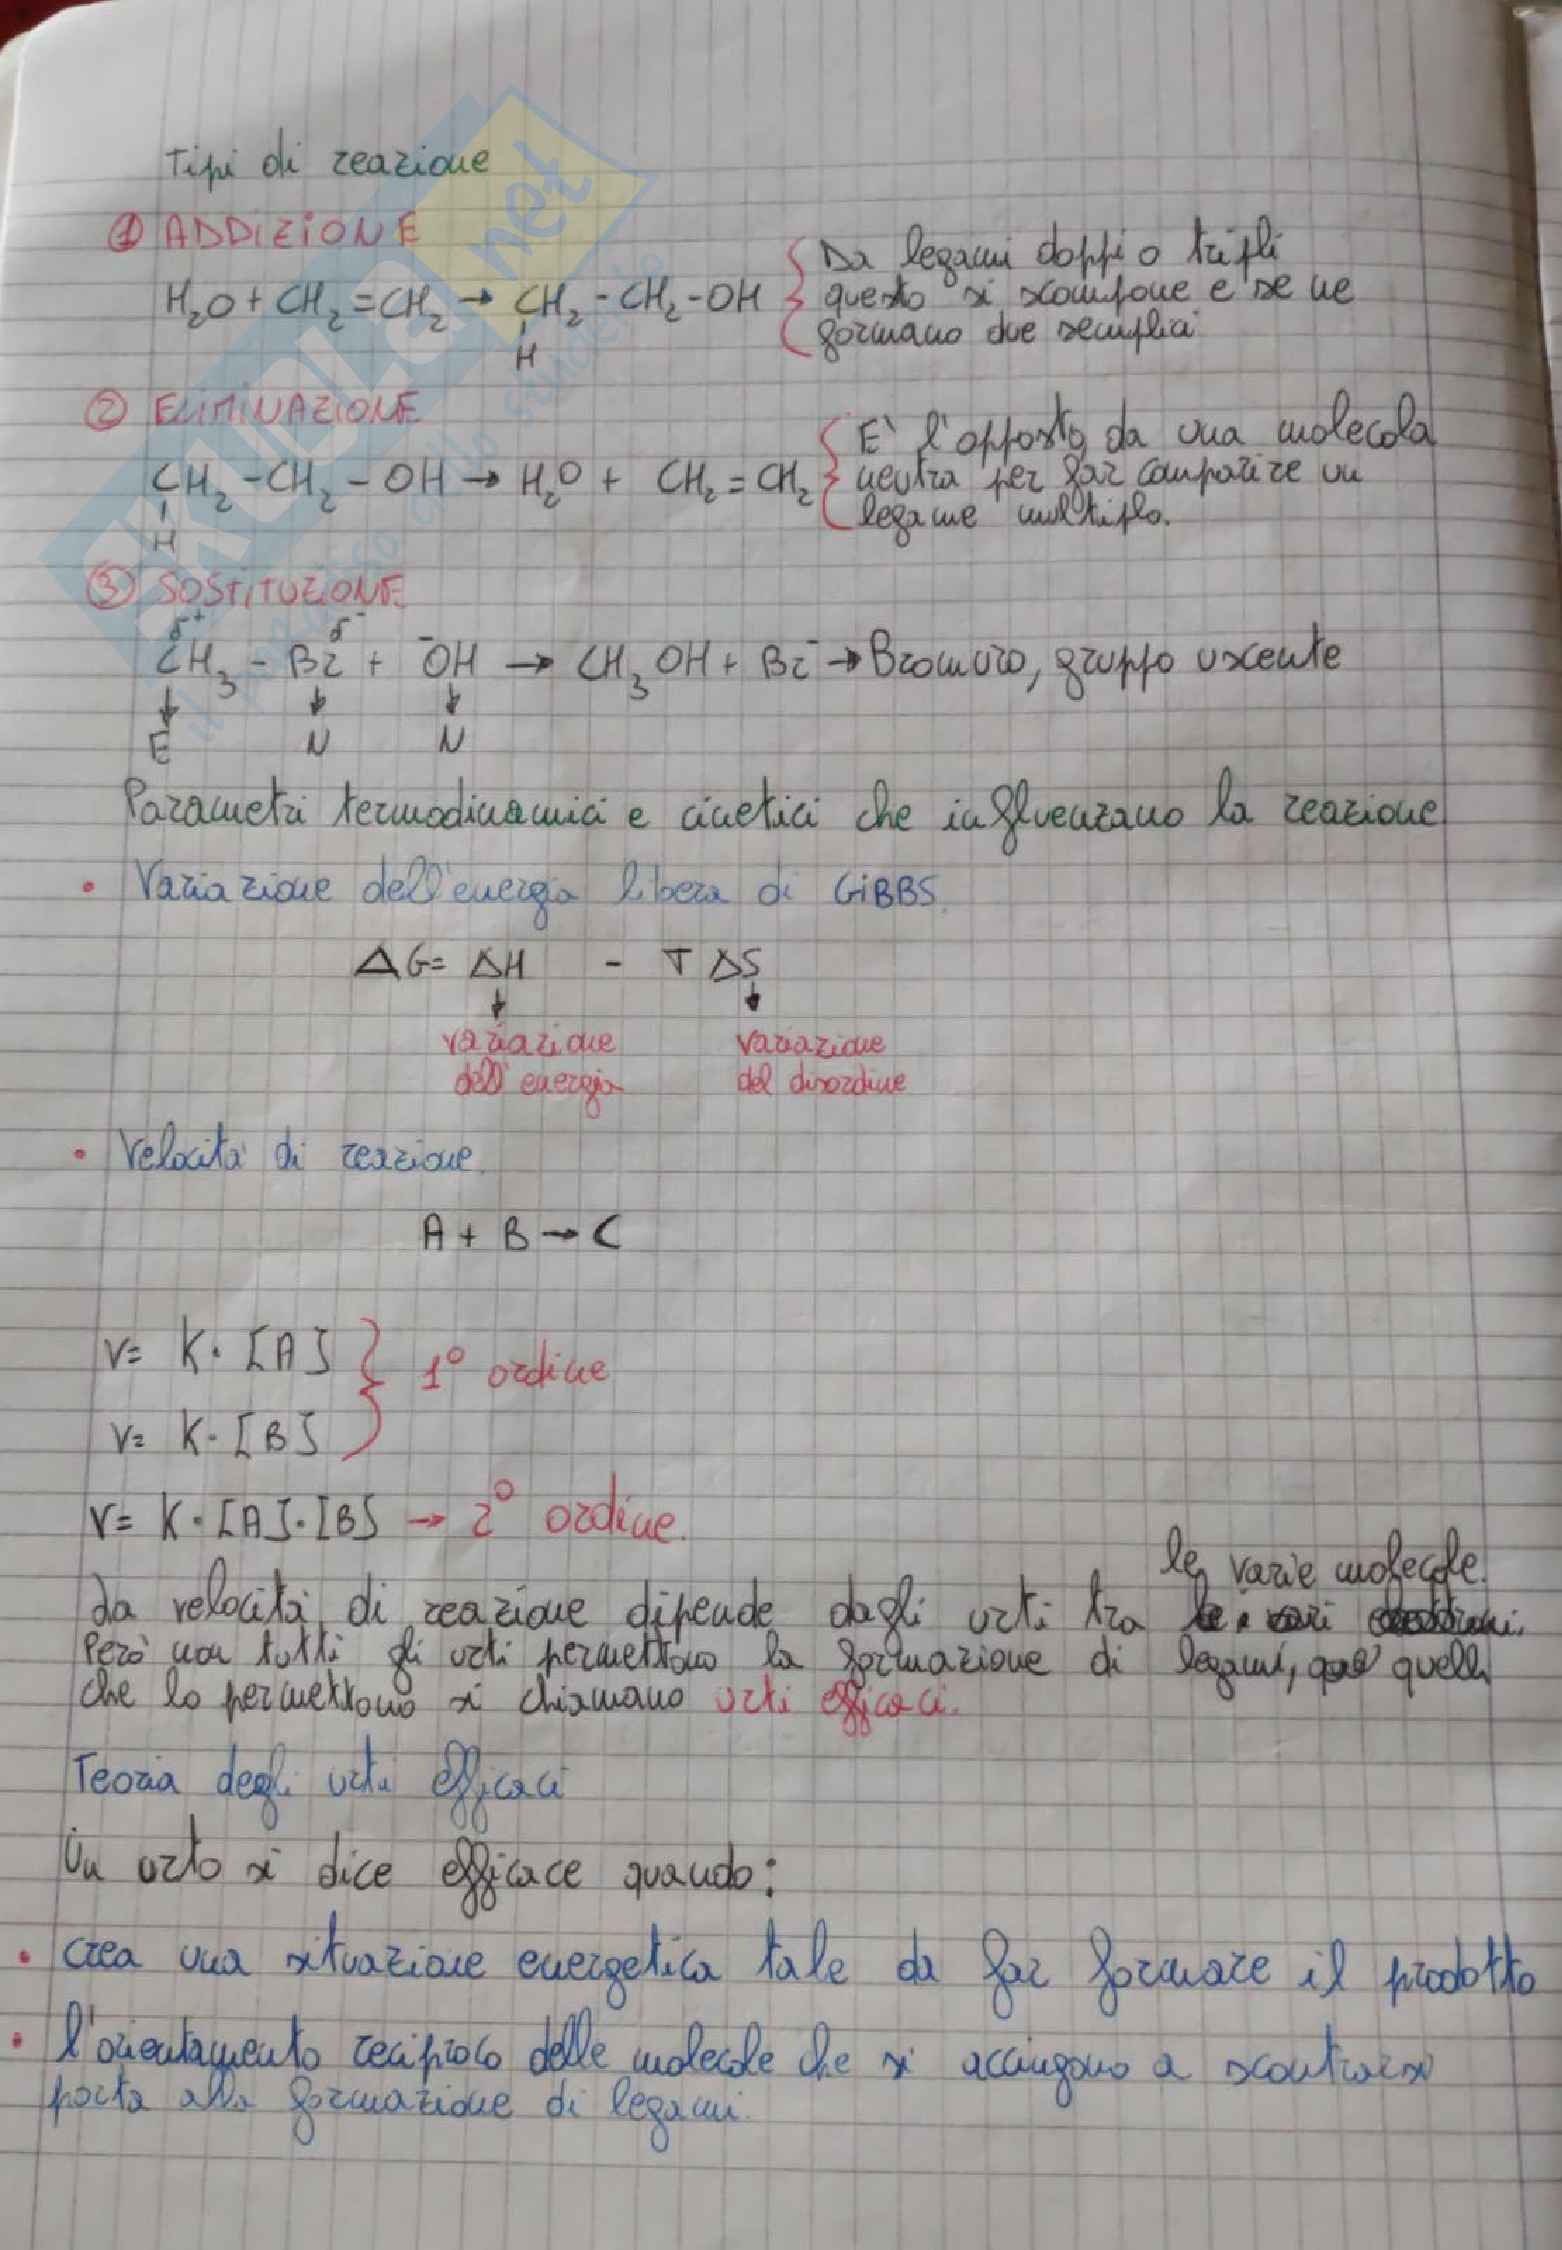 Tipi di reazione
① ADDIZIONE
H₂O + CH₂=CH₂ → CH₂-CH₂-OH
H
Da legami doppi o tripli
questo si scompone e se ne
formano due semplici
② ELIMINAZIONE
CH₂-CH₂-OH → H₂O + CH₂=CH₂
H
E' l'opposto, da una molecola
neutra per far comparire un
legame multiplo.
③ SOSTITUZIONE
δ⁺ δ⁻
CH₃-Br + ⁻OH → CH₃OH + Br⁻ → Bromuro, gruppo uscente
↓ ↓ ↓
E N N
Parametri termodinamici e cinetici che influenzano la reazione
• Variazione dell'energia libera di GIBBS.
ΔG= ΔH - T ΔS
↓ ↓
variazione variazione
dell'energia del disordine
• Velocità di reazione.
A + B → C
v= K·[A]
v= K·[B]
1° ordine
v= K·[A]·[B] → 2° ordine.
le varie molecole.
La velocità di reazione dipende dagli urti tra
Però non tutti gli urti permettono la formazione di legami, quelli
che lo permettono si chiamano urti efficaci.
Teoria degli urti efficaci
Un urto si dice efficace quando:
• crea una situazione energetica tale da far formare il prodotto
• l'orientamento reciproco delle molecole che si accingono a scontrarsi
porta alla formazione di legami.
SKUOLA.net
il paradiso dello studente